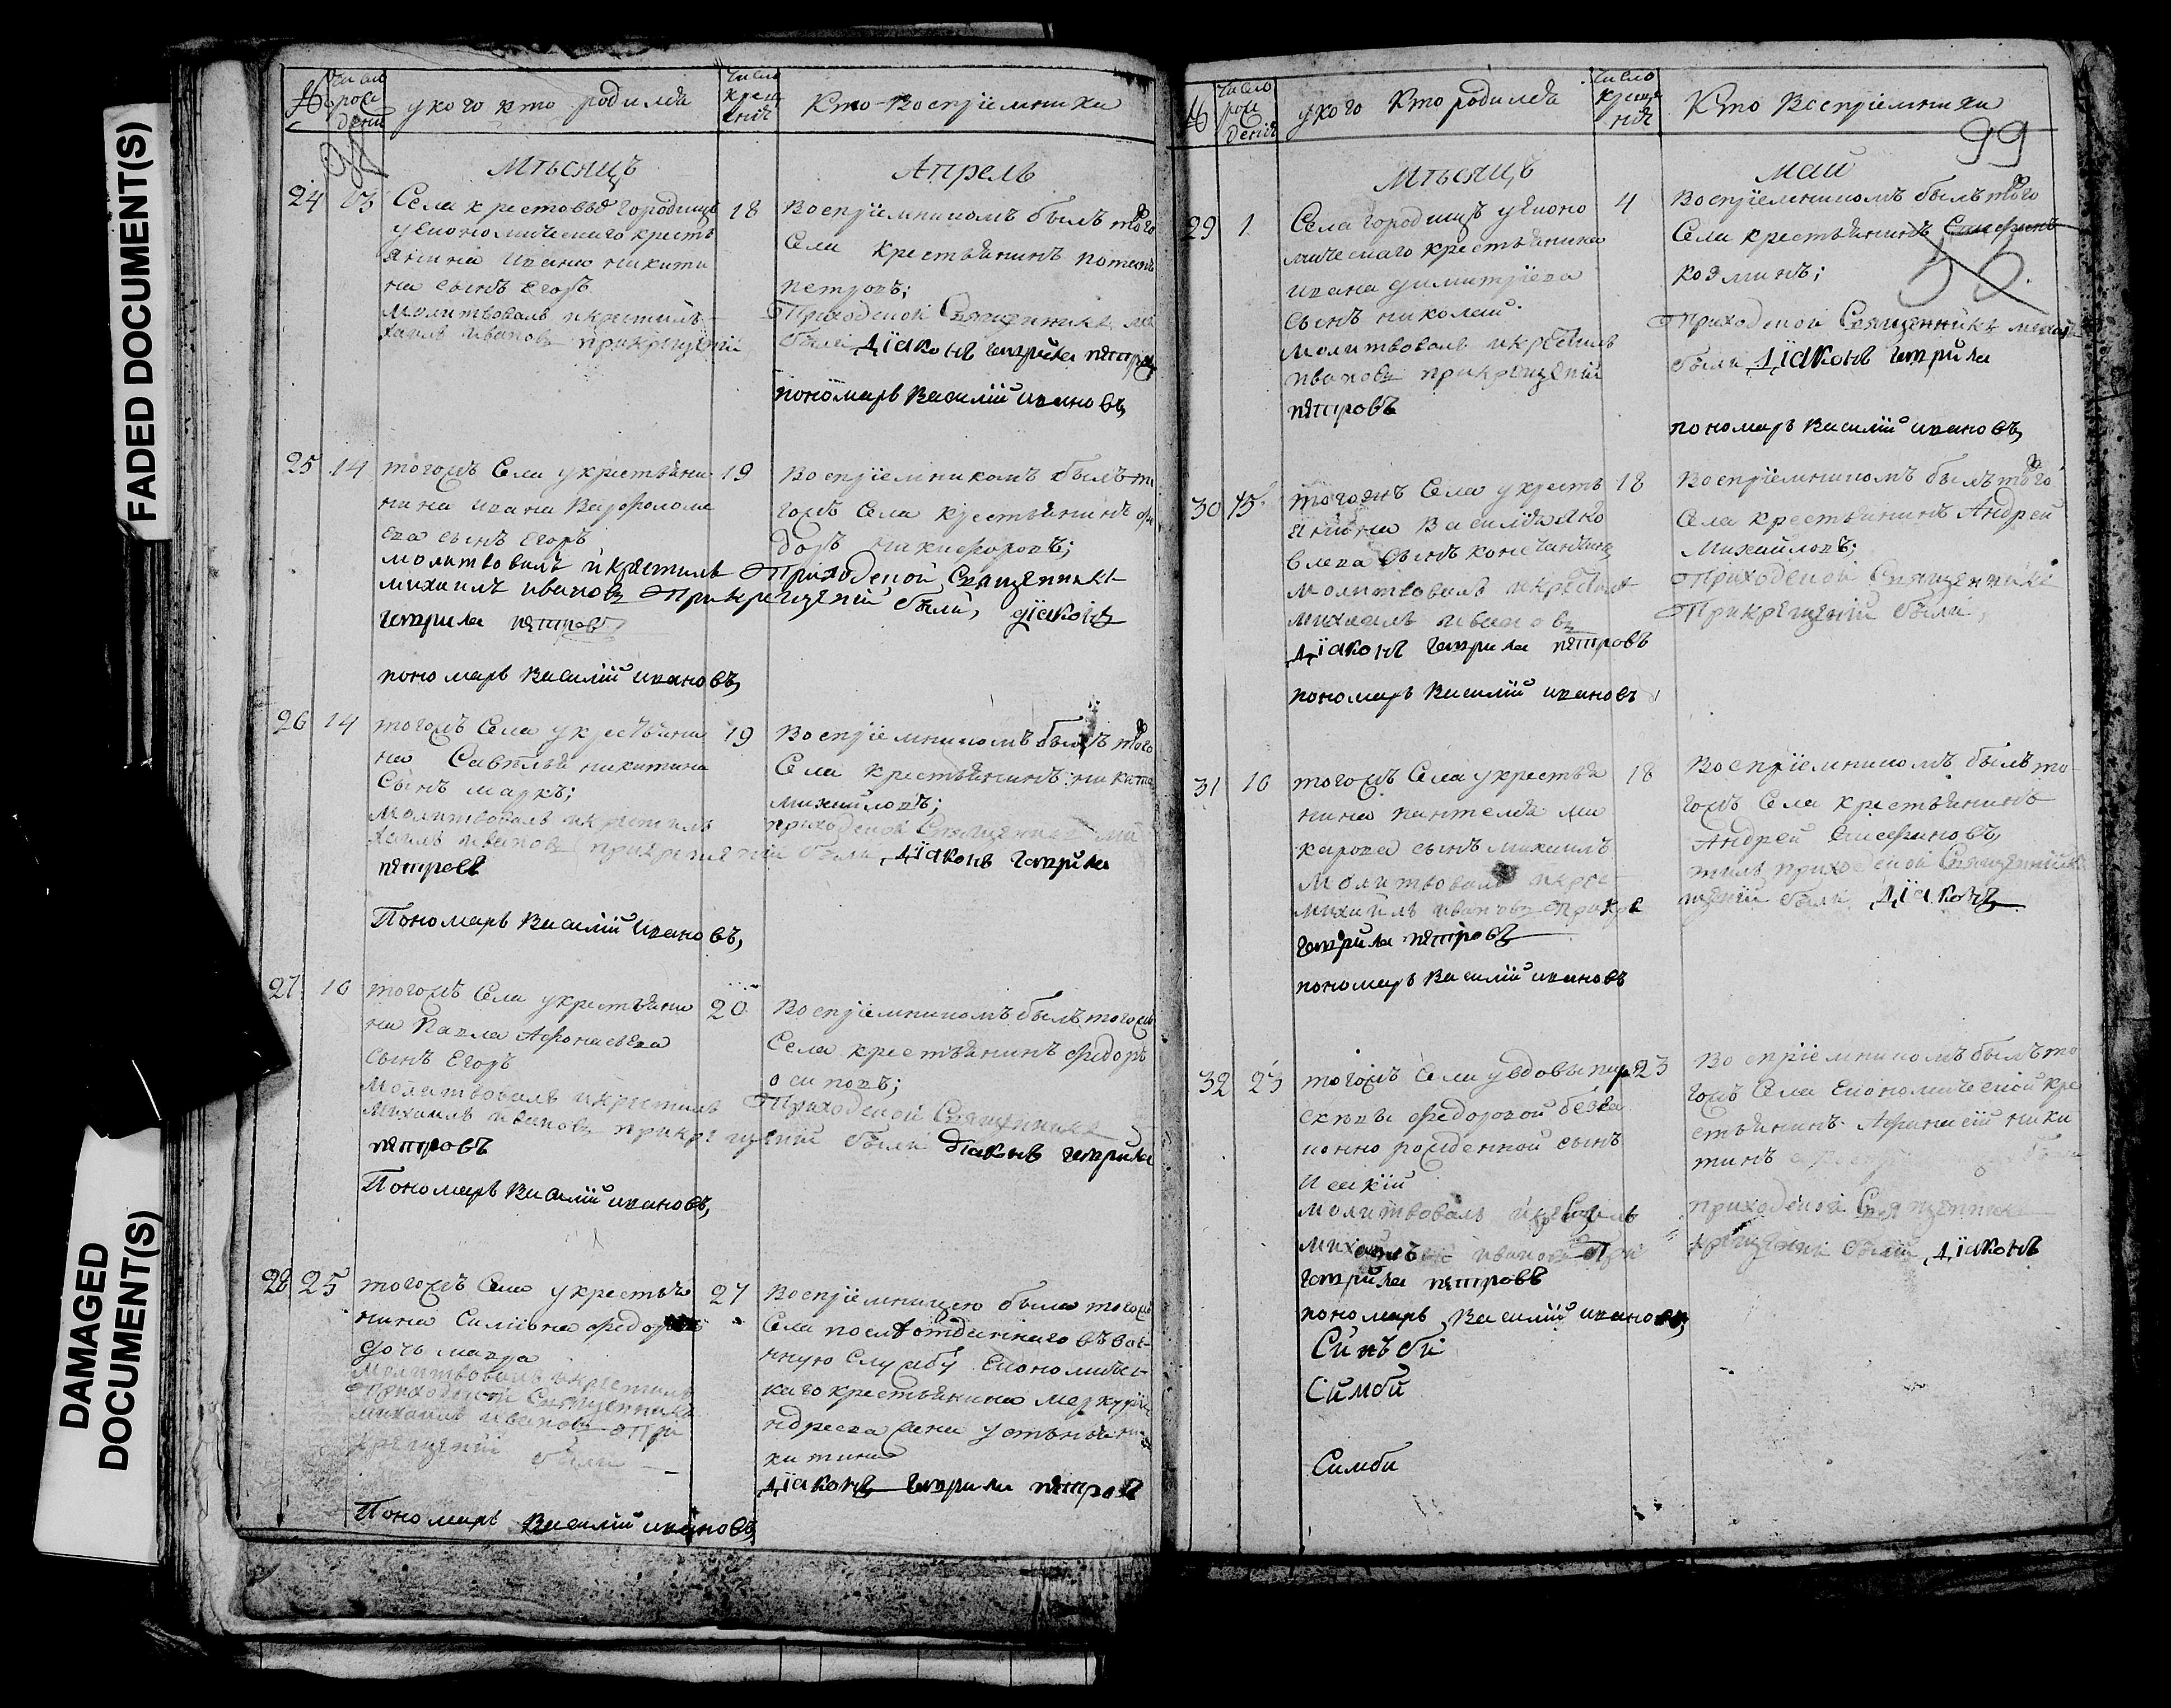 FADED DOCUMENT(S)
DAMAGED
DOCUMENT(S)
№
число
рож
дени
у кого кто родился
число
крещ
ения
Кто Восприемники
Мѣсяцъ
Апрель
24
13
Села крестовыхъ городищъ
у економическаго кресть
янина ивана никити
на сынъ Егоръ
молитвовалъ и крестилъ
хаилъ ивановъ при крещении
18
Восприемникомъ былъ того
Села крестьянинъ потапъ
петровъ;
Приходской Священникъ ми
были диаконъ гаврила петровъ
пономарь Василий ивановъ
25
14
тогожъ Села у крестьяни
нина ивана Варфоломе
ева сынъ Егоръ
молитвовалъ и крестилъ Приходской Священникъ
михаилъ ивановъ При крещении были, диаконъ
гаврила петровъ
пономарь Василий ивановъ
19
Восприемникомъ былъ то
гожъ Села крестьянинъ фе
доръ никифоровъ;
26
14
тогожъ Села у крестьяни
на Савелья никитина
Сынъ маркъ;
молитвовалъ и крестилъ
хаилъ ивановъ при крещении были диаконъ гаврила
петровъ
Пономарь Василий ивановъ
19
Восприемникомъ былъ того
Села крестьянинъ никита
михайловъ;
приходской Священникъ ми
27
16
тогожъ Села у крестьяни
на Павла Афонасьева
сынъ Егоръ
молитвовалъ и крестилъ Приходской Священникъ
михаилъ ивановъ при крещении были диаконъ гаврила
петровъ
Пономарь Василий ивановъ
20
Восприемникомъ былъ тогожъ
Села крестьянинъ федоръ
осиповъ;
28
25
тогожъ Села у крестья
нина Симиона федорова
дочь мавра
молитвовалъ и крестилъ
Приходской Священникъ
михаилъ ивановъ При
крещении были
Пономарь Василий ивановъ
27
Восприемницею была тогожъ
Села после отданнаго въ вое
нную службу Економичес
каго крестьянина меркурия
ндреева жена устинья ни
китина
диаконъ гаврила петровъ
№
число
рож
дения
у кого кто родился
число
креще
ния
Кто Восприемники
99
Мѣсяцъ
май
29
1
Села городищъ у еконо
мическаго крестьянина
ивана димитриева
сынъ николай
молитвовалъ и крестилъ
ивановъ при крещении
петровъ
4
Восприемникомъ былъ того
Села крестьянинъ
козминъ;
Приходской Священникъ михаилъ
были диаконъ гаврила
пономарь Василий ивановъ
30
15
тогожъ Села у кресть
янина Василья яко
влева сынъ констянтинъ
молитвовалъ и крестилъ
михаилъ ивановъ
диаконъ гаврила петровъ
пономарь Василий ивановъ
18
Восприемникомъ былъ того
Села крестьянинъ Андрей
Михайловъ;
Приходской Священникъ
При крещении были,
31
16
тогожъ Села у крестья
нина пантелея ма
карова сынъ михаилъ
молитвовалъ и крес
михаилъ ивановъ при кре
гаврила петровъ
пономарь Василий ивановъ
18
Восприемникомъ былъ то
гожъ Села крестьянинъ
Андрей
тилъ приходской Священникъ
щении были диаконъ
32
23
тогожъ Села у вдовы пара
сковьи федоровой безза
конно рожденной сынъ
молитвовалъ и крестилъ
михаилъ ивановъ При
гаврила петровъ
пономарь Василий ивановъ
Симби
Симби
23
Восприемникомъ былъ то
гожъ Села Економической кре
стьянинъ Афанасий ники
тинъ
приходской Священникъ
крещении были диаконъ